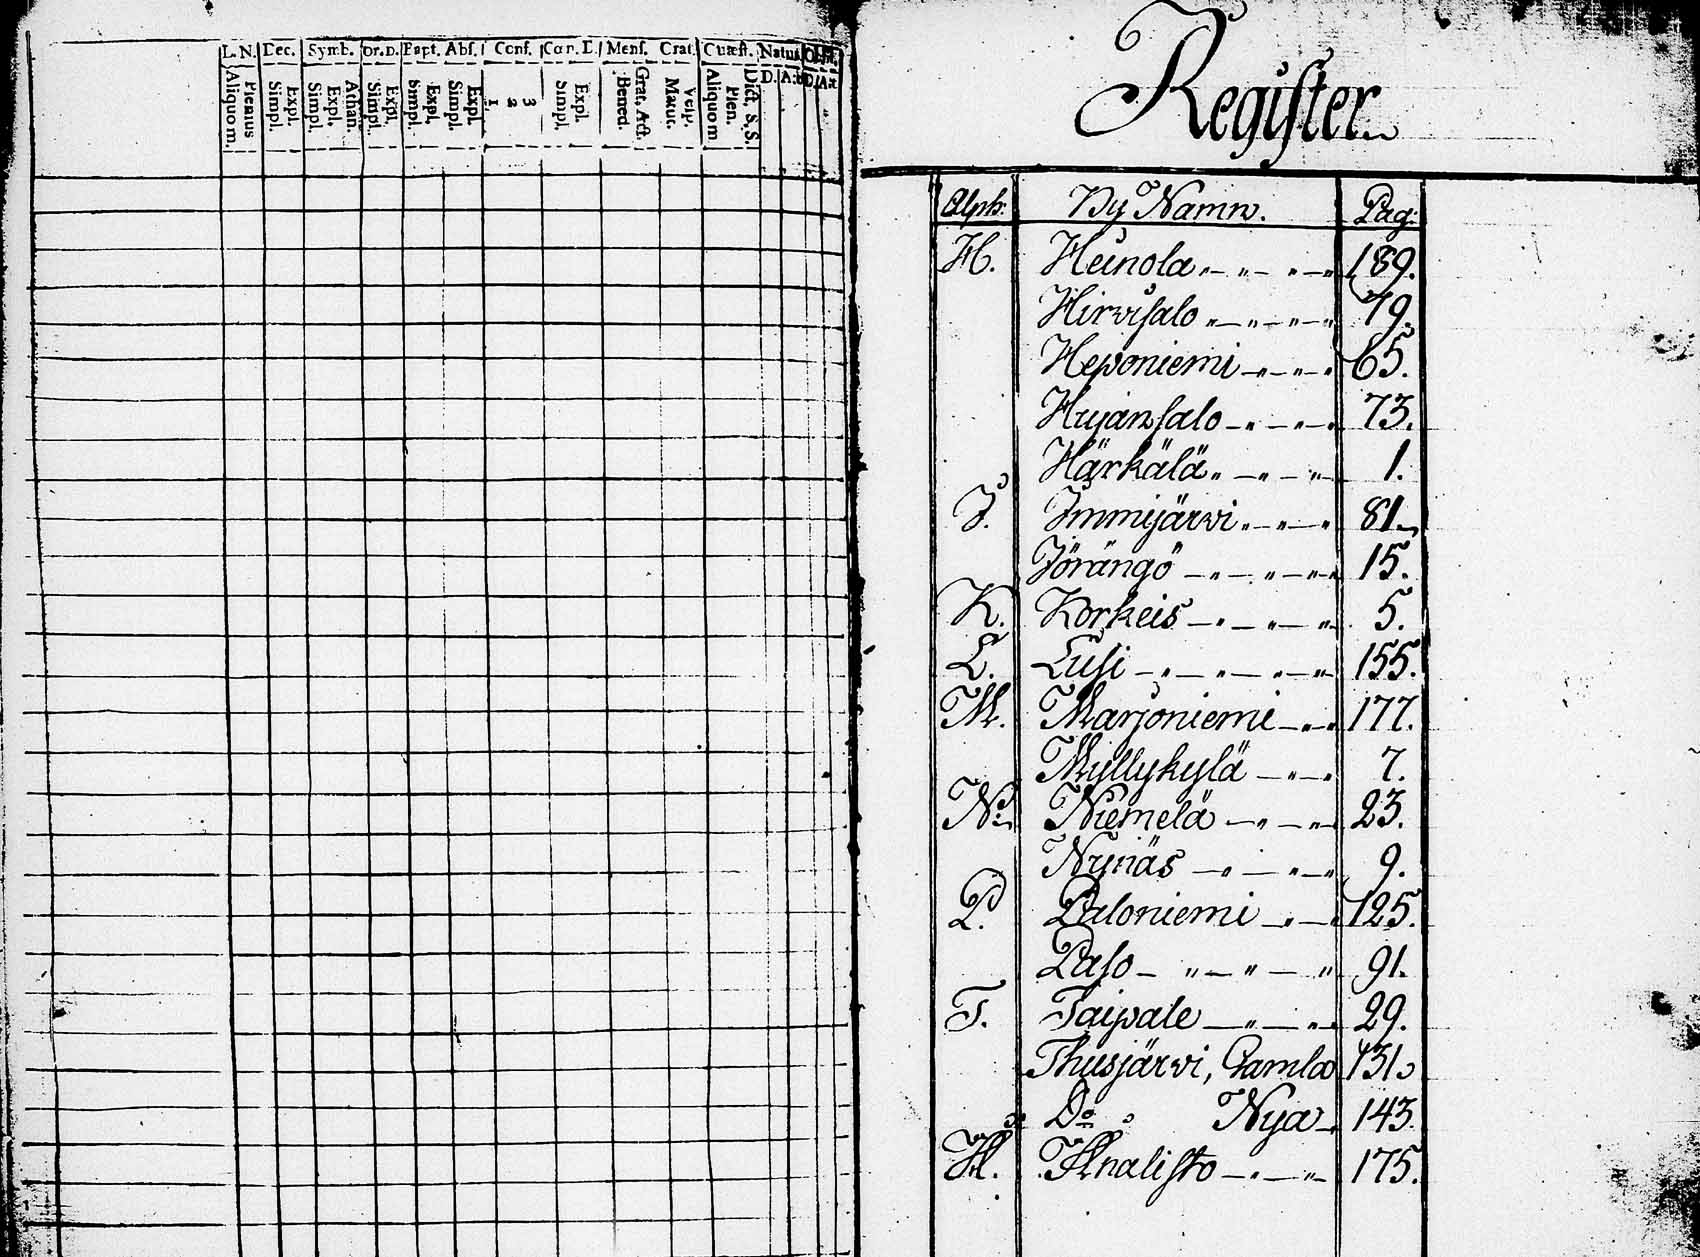 L. N. Dec. Symb. Or. D. Bapt. Abs. Conf. Cœn. D. Mens. Crat. Cuæst. Natus Obiit.
Plenius Aliquom.
Expl. Simpl.
Athan. Expl. Simpl.
Expl. Simpl.
Expl. Simpl.
Expl. Simpl.
3 2 1
Expl. Simpl.
Grat. Act. Bened.
Vesp. Matut.
Dict. S. S. Plen. Aliquom
D. A:o D. A:o
Register
Alph: By Namn. Pag:
H. Heinola 189.
Hirvisalo 79.
Heponiemi 65.
Hujansalo 73.
Härkälä 1.
J. Immijärvi 81.
Jörängö 15.
K. Korkeis 5.
L. Lusi 155.
M. Marjoniemi 177.
Myllykylä 7.
N. Niemelä 23.
Nynäs 9.
P. Paloniemi 125.
Paso 91.
T. Taipale 29.
Thusjärvi, Gamla 131.
D:o Nya 143.
175.